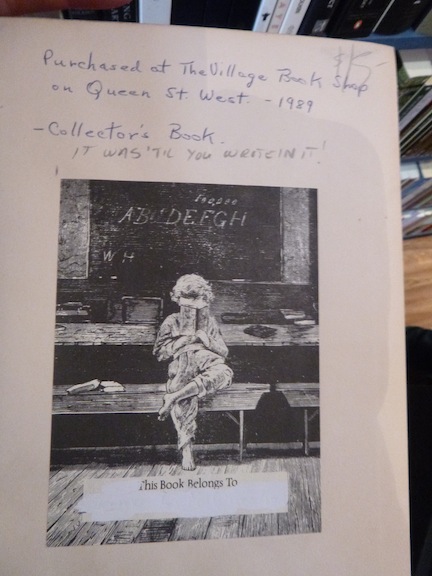 $15-
Purchased at The Village Book Shop
on Queen St. West. - 1989
- Collector's Book.
IT WAS 'TIL YOU WROTE IN IT!
ABCDEFGH
W H
This Book Belongs To